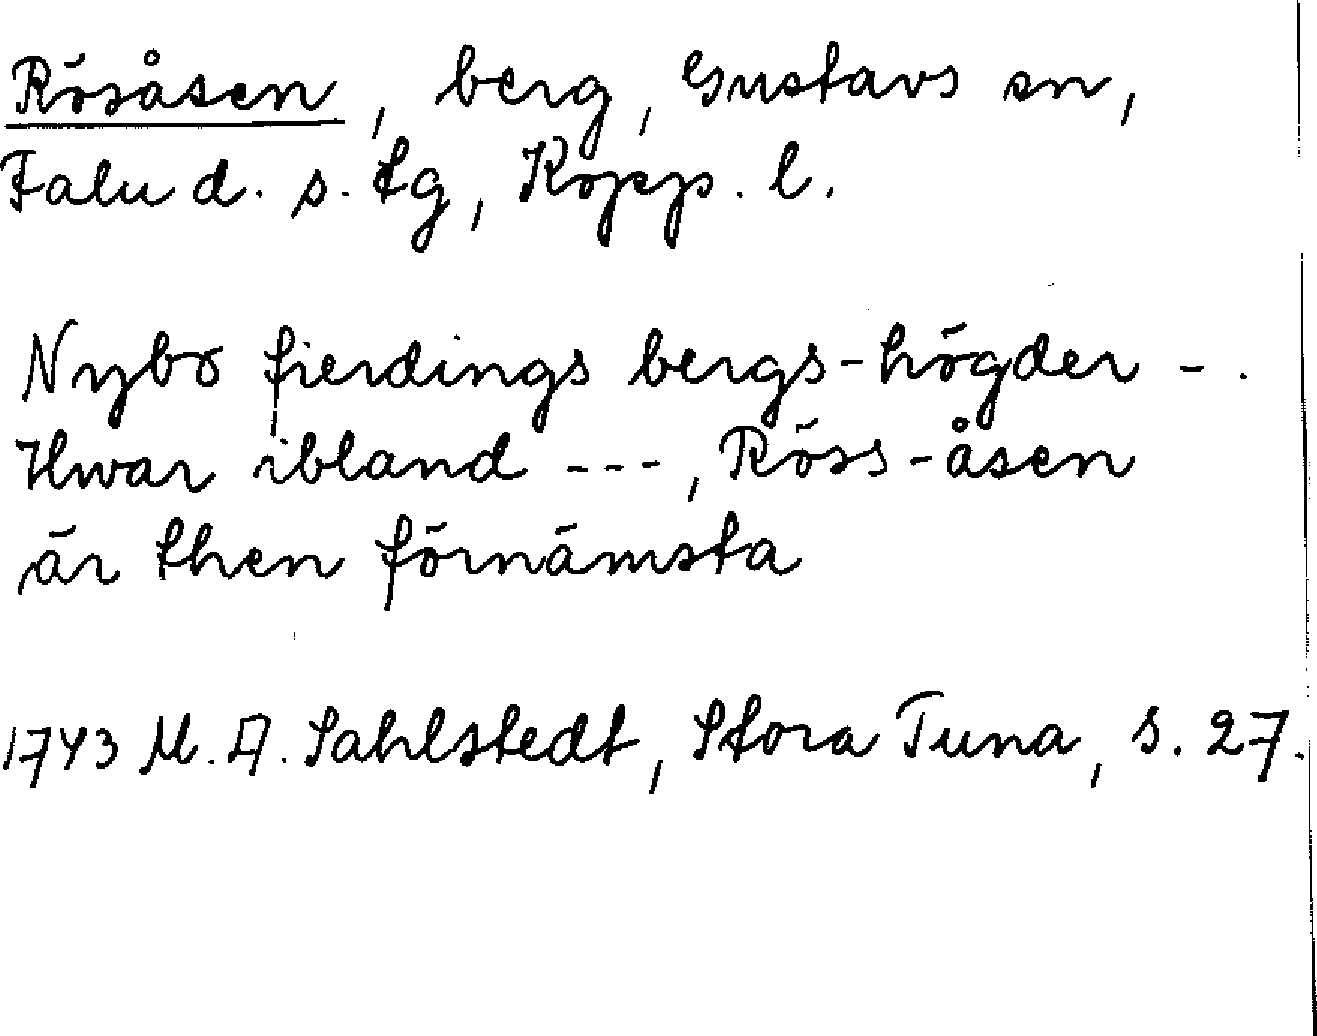 Rösåsen, berg, Gustavs sn,
Falu d. s. tg, Kopp. l.
Nybo fierdings bergs-högder - .
Hwar ibland ---, Röss-åsen
är then förnämsta
1743 M. A. Sahlstedt, Stora Tuna, s. 27.